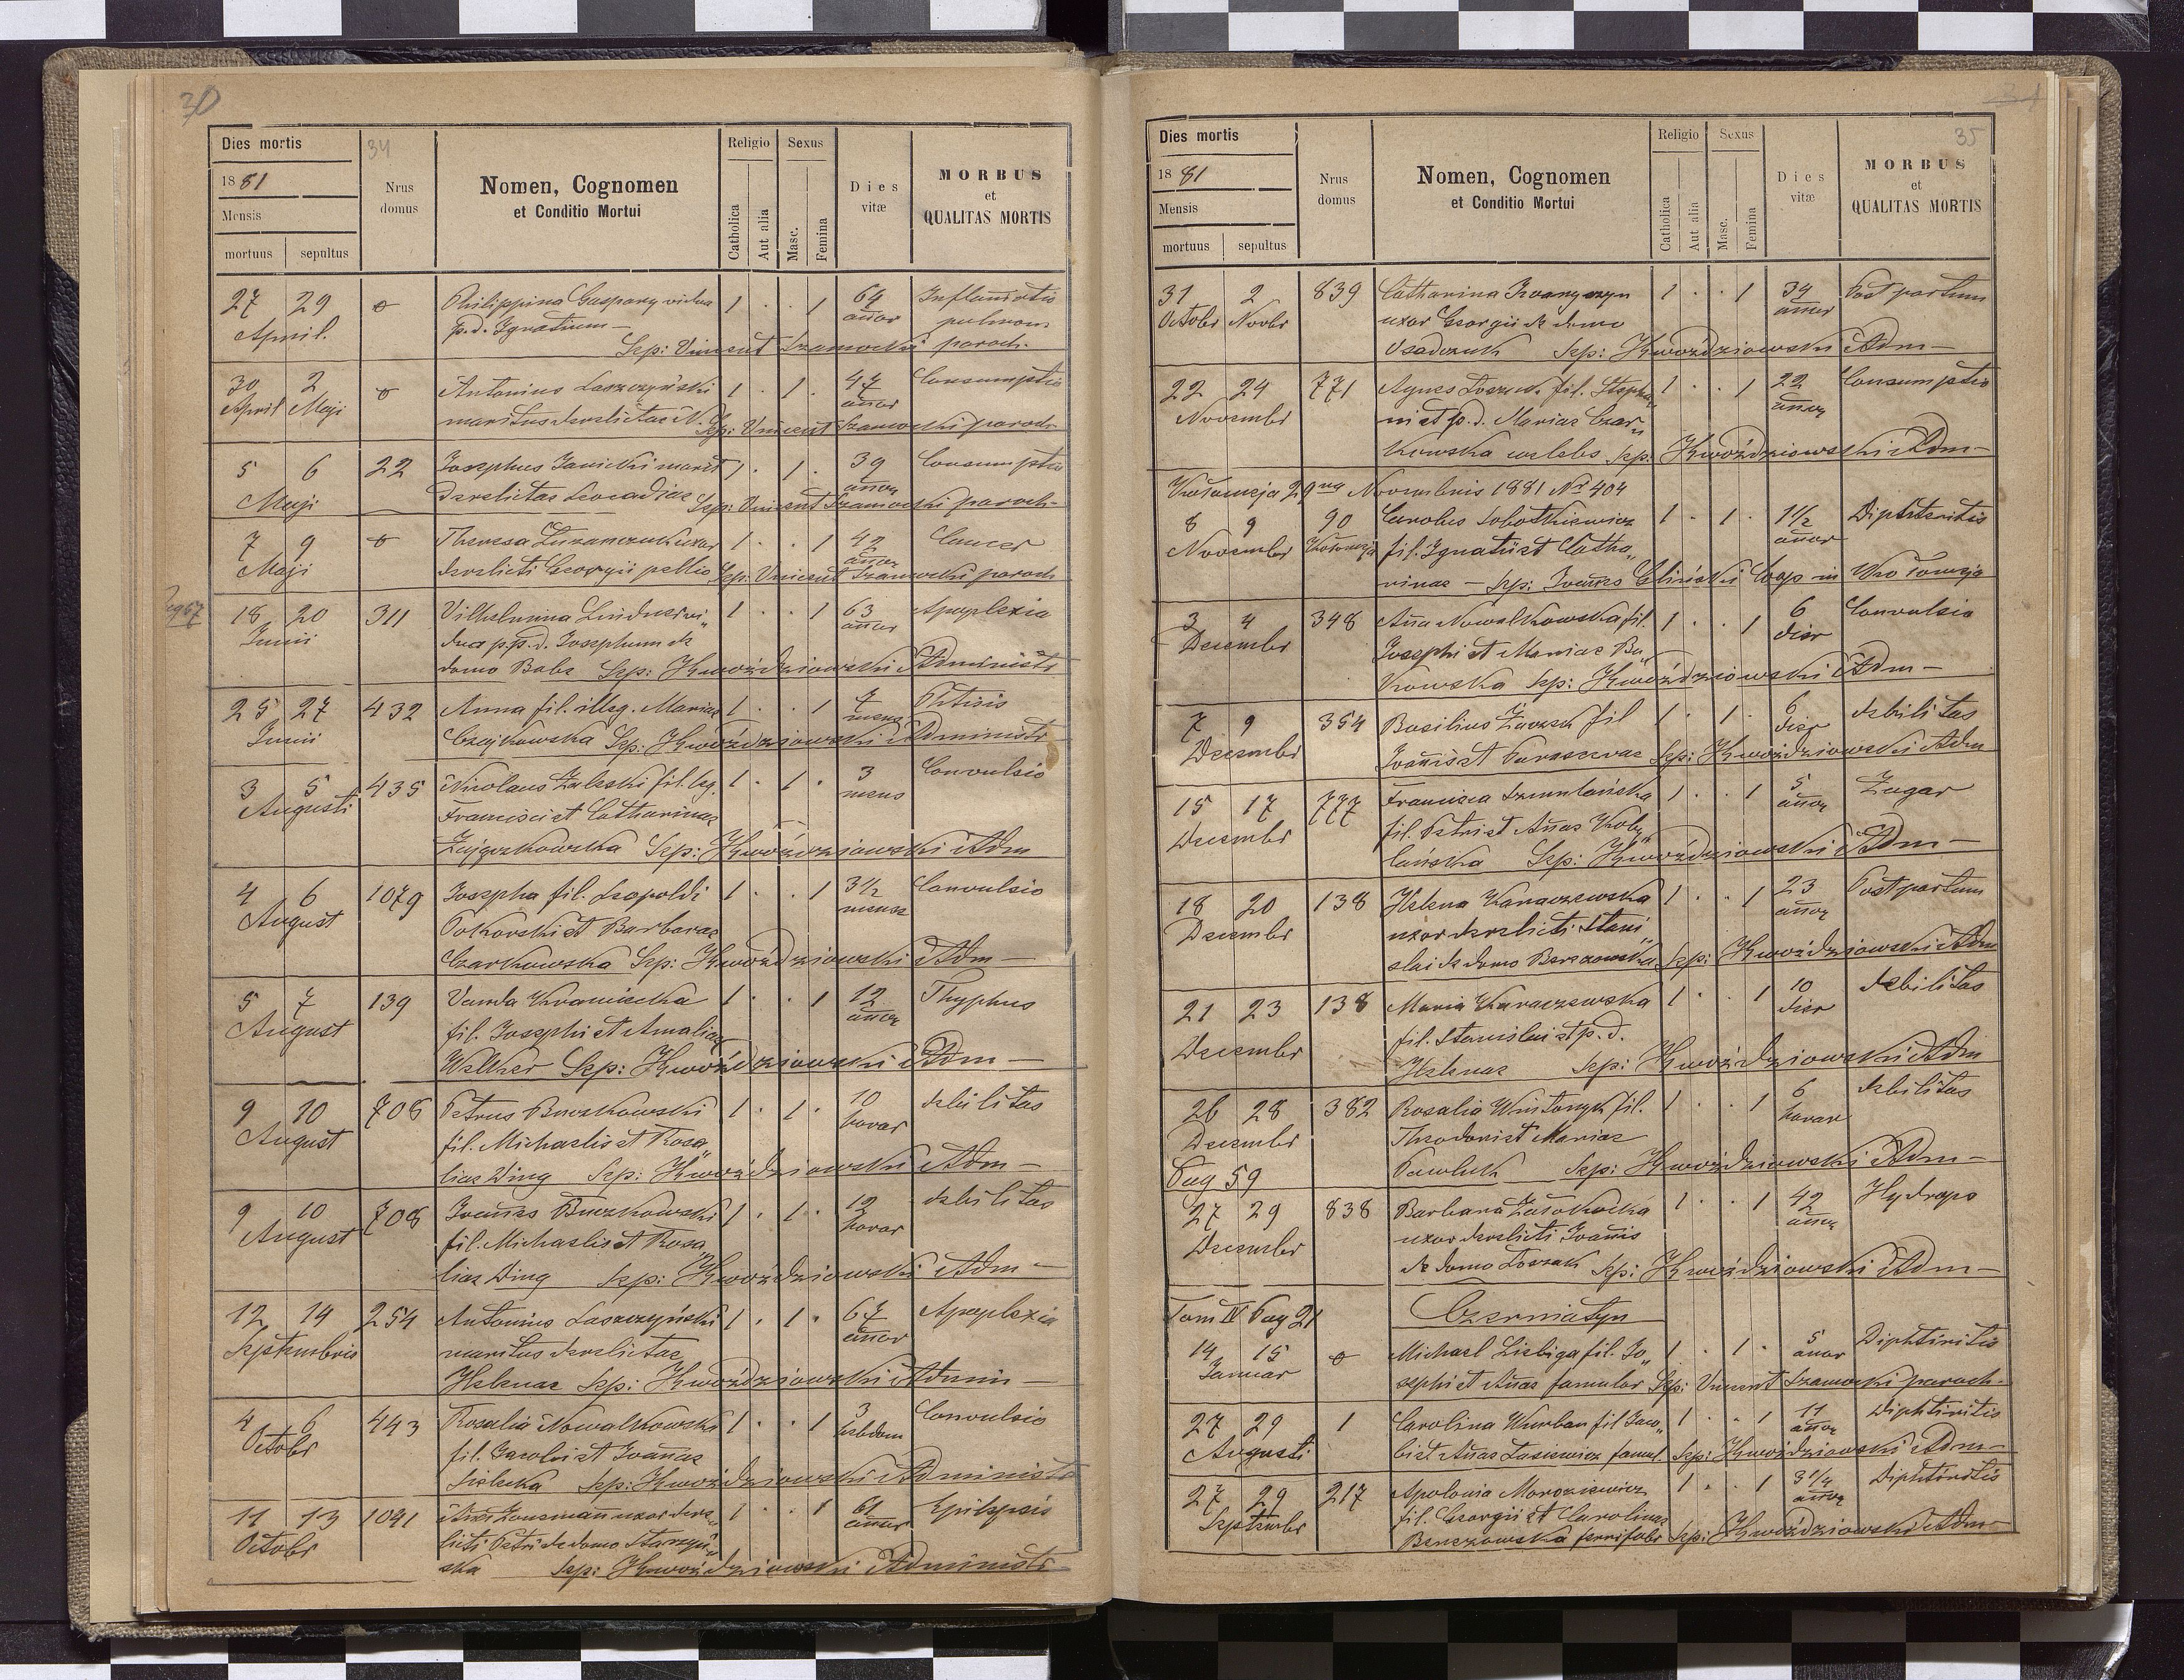 30
Dies mortis
1881
Mensis
mortuus sepultus
34
Nrus domus
Nomen, Cognomen
et Conditio Mortui
Religio
Catholica
Aut alia
Sexus
Masc.
Femina
Dies vitæ
MORBUS
et
QUALITAS MORTIS
27 29 Philippina Gaspary vidua 1 . . 1 64
April. p. d. Ignatium — annor pulmon
Sep: Vincent Szamocki paroch.
30 2 Antonius Laszczyński 1 . 1 . 47 Consumptio
April Maji maritus derelictae N. annor
Sep: Vincent Szamocki paroch
5 6 22 Josephus Janicki marit 1 . 1 . 39 Consumptio
Maji derelictae Leocadiae annor
Sep: Vincent Szamocki paroch-
7 9 Theresa uxor 1 . . 1 42 Cancer
Maji derelicti Georgii pellio annor
Sep: Vincent Szamocki paroch
18 20 311 Vilhelmina vi„ 1 . . 1 63 Apoplexia
Junii dua p. p. d. Josephum de annor
domo Babe Sep: Hwoździowski Administr
25 27 432 Anna fil. illeg. Mariae 1 . . 1 7 Phtisis
Junii Czajkowska Sep: Hwoździowski Administr mens
3 5 435 Nicolaus Zaleski fil. leg. 1 . 1 . 3 Convulsio
Augusti Francisci et Catharinae mens
Zajączkowska Sep: Hwoździowski Adm
4 6 1079 Josepha fil. Leopoldi 1 . . 1 3 1/2 Convulsio
August Potkovski et Barbarae mens
Czarkowska Sep: Hwoździowski Adm —
5 7 139 Vanda 1 . . 1 12 Thyphus
August fil. Josephi et Amaliae annor
Welker Sep: Hwoździowski Adm —
9 10 708 Petrus Buczkowski 1 . 1 . 10 debilitas
August fil. Michaelis et Rosa„ horar
liae Wing Sep: Hwoździowski Adm —
9 10 708 Joannes Buczkowski 1 . 1 . 12 debilitas
August fil. Michaelis et Rosa„ horar
liae Wing Sep: Hwoździowski Adm —
12 14 254 Antonius Laszczyński 1 . 1 . 67 Apoplexia
Septembris maritus derelictae annor
Helenae Sep: Hwoździowski Admin —
4 6 443 Rosalia Nowalkowska 1 . . 1 3 Convulsio
Octobr fil. Caroli et Joannae hebdom
Sep: Hwoździowski Administr
11 13 1091 Anna uxor dere„ 1 . . 1 61 Epilepsis
Octobr licti Petri de domo Starzyń„ annor
ska Sep: Hwoździowski Administr
35
Dies mortis
1881
Mensis
mortuus sepultus
Nrus domus
Nomen, Cognomen
et Conditio Mortui
Religio
Catholica
Aut alia
Sexus
Masc.
Femina
Dies vitæ
MORBUS
et
QUALITAS MORTIS
31 2 839 Catharina Iwanyszyn 1 . . 1 34 Post partum
Octobr Novbr uxor Georgii de domo annor
Osadczuk Sep: Hwoździowski Adm —
22 24 771 Agnes fil. Stepha„ 1 . . 1 22 Consumptio
Novembr ni et p. d. Mariae Czar„ annor
kowska Sep: Hwoździowski Adm —
Kołomeja 29na Novembris 1881 Nr 404
8 9 90 Carolus Sobotkiewicz 1 . 1 . 1 1/2 Diphteritis
Novembr Kołomeja fil. Ignatii et Catha„ annor
rinae — Sep: Joannes Coop in Kołomeja
3 4 348 Anna Nowalkowska fil. 1 . . 1 6 Convulsio
Decembr Josephi et Mariae Bu„ dier
kowska Sep: Hwoździowski Adm —
7 9 354 Basilius fil 1 . 1 . 6 debilitas
Decembr Joannis et Parascevae Sep: Hwoździowski Adm dier
15 17 777 Francisca Szmulańska 1 . . 1 5
Decembr fil. Petri et Annae Koby„ annor
lańska Sep: Hwoździowski Adm —
18 20 138 Helena Karaczewska 1 . . 1 23 Post partum
Decembr uxor derelicti Stani„ annor
slai de domo Berezowska Sep: Hwoździowski Adm
21 23 138 Maria Karaczewska 1 . . 1 10 debilitas
Decembr fil. Stanislai et p. d. dier
Helenae Sep: Hwoździowski Adm
26 28 382 Rosalia Wintonyk fil. 1 . . 1 6 debilitas
Decembr Theodori et Mariae horar
Pawluk Sep: Hwoździowski Adm —
Pag 59
27 29 838 Barbara 1 . . 1 42 Hydrops
Decembr uxor derelicti Joannis annor
de domo Sep: Hwoździowski Adm —
Tom IV Pag 21 Czerniatyn
14 15 Michael Liebiga fil. Jo„ 1 . 1 . 5 Diphtiritis
Januar sephi et Annae famulor annor
Sep: Vincent Szamocki paroch.
27 29 1 Carolina Wurban fil Jaco„ 1 . . 1 11 Diphtiritis
Augusti bi et Annae Lasiewicz famul. annor
Sep: Hwoździowski Adm —
27 29 217 Apolonia Morozievicz 1 . . 1 3 1/4 Diphtiritis
Septembr fil. Georgii et Carolinae annor
Berezowska Sep: Hwoździowski Adm —